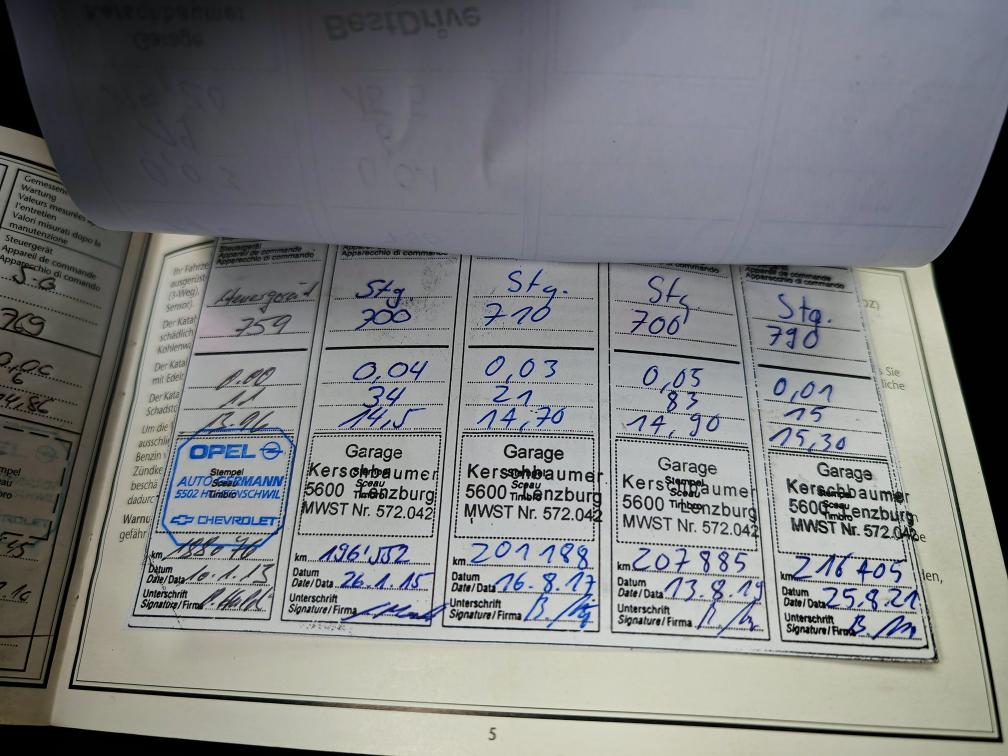 BestDrive
Kerschbaumer
Garage
Gemessene
Wartung
Valeurs mesurées
l'entretien
Valori misurati dopo la
manutenzione
Steuergerät
Appareil de commande
Apparecchio di comando
S.G
769
Ihr Fahrze
ausgerüst
(3-Weg),
Sensor).
Der Katal
schädlich
Kohlenwa
Der Kata
mit Edelr
Der Kata
Schadsto
Um die
ausschlie
Benzin
Zündke
beschä
dadurc
Warnu
gefähr
Steuergerät
Appareil de commande
Apparecchio di comando
Steuergerät
759
0.00
11
13.96
OPEL
AUTO GERMANN
5502 HUNZENSCHWIL
CHEVROLET
Stempel
Sceau
Timbro
km
Datum
Date/Data 10.1.13
Unterschrift
Signature/Firma
Appareil de commande
Apparecchio di comando
Stg
700
0,04
34
14,5
Garage
Kerschbaumer
5600 Lenzburg
MWST Nr. 572.042
Stempel
Sceau
Timbro
km 196'552
Datum
Date/Data 26.1.15
Unterschrift
Signature/Firma
Apparecchio di comando
Stg.
710
0,03
21
14,70
Garage
Kerschbaumer
5600 Lenzburg
MWST Nr. 572.042
Stempel
Sceau
Timbro
km 201188
Datum
Date/Data 16.8.17
Unterschrift
Signature/Firma
Apparecchio di comando
Stg
700
0,05
83
14,90
Garage
Kerschbaumer
5600 Lenzburg
MWST Nr. 572.042
Stempel
Sceau
Timbro
km 207885
Datum
Date/Data 13.8.19
Unterschrift
Signature/Firma
Appareil de commande
Apparecchio di comando
Stg.
790
0,01
15
15,30
Garage
Kerschbaumer
5600 Lenzburg
MWST Nr. 572.042
Stempel
Sceau
Timbro
km 216405
Datum
Date/Data 25.8.21
Unterschrift
Signature/Firma
OZ)
Sie
liche
den,
5